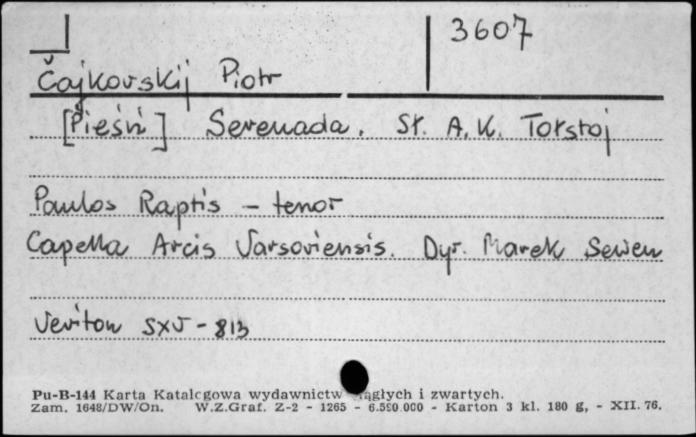 3607
Čajkovskij Piotr
[Pieśń] Serenada. Sł. A.K. Tołstoj
Paulos Raptis – tenor
Capella Arcis Varsoviensis. Dyr. Marek Sewen
Veriton SXV - 813
Pu-B-144 Karta Katalogowa wydawnictw ciągłych i zwartych.
Zam. 1648/DW/On. W.Z.Graf. Z-2 - 1265 - 6.590.000 - Karton 3 kl. 180 g, - XII. 76.